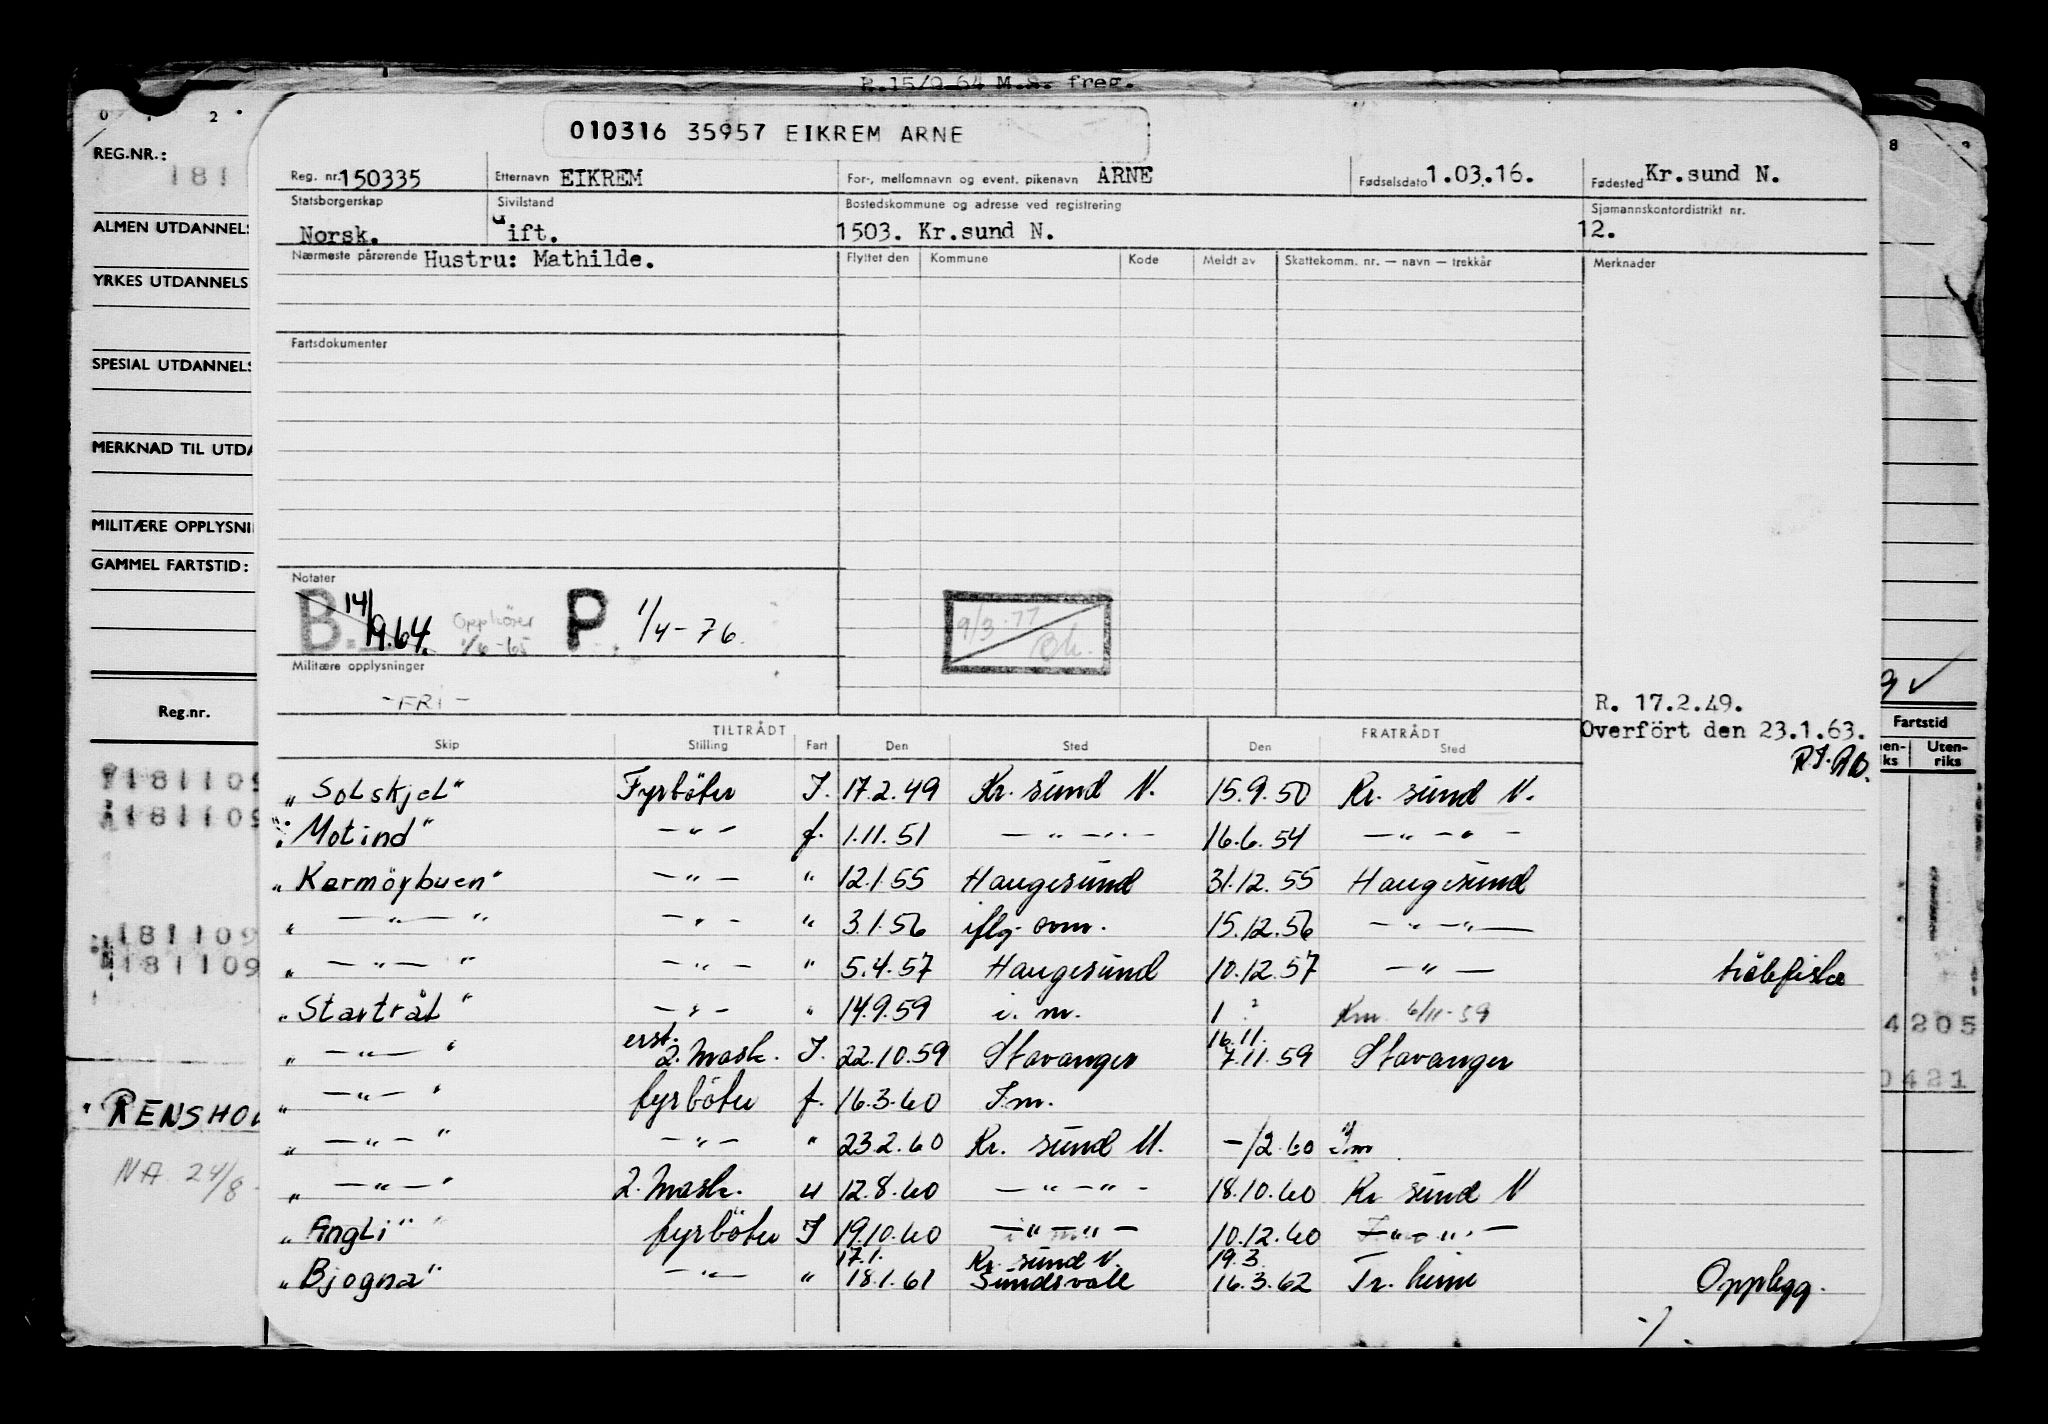 R.15/9-64 M.s. freg.
010316 35957 EIKREM ARNE
Reg. nr. 150335 Etternavn EIKREM For-, mellomnavn og event. pikenavn ARNE Fødselsdato 1.03.16. Fødested Kr.sund N.
Statsborgerskap Sivilstand Bostedskommune og adresse ved registrering Sjømannskontordistrikt nr.
Norsk. Gift. 1503. Kr.sund N. 12.
Nærmeste pårørende Hustru: Mathilde. Flyttet den Kommune Kode Meldt av Skattekomm. nr. — navn — trekkår Merknader
Fartsdokumenter
Notater
B. 14/9.64. Opphører 1/6-65 P 1/4-76 9/3.77 Bh.
Militære opplysninger
-FRI-
R. 17.2.49.
Overfört den 23.1.63.
TILTRÅDT FRATRÅDT
Skip Stilling Fart Den Sted Den Sted
„Solskjel" Fyrböter I. 17.2.49 Kr. sund N. 15.9.50 Kr. sund N.
„Motind" —"— f. 1.11.51 —"—"— 16.6.54 —"—"—
„Karmöybuen" —"— " 12.1.55 Haugesund 31.12.55 Haugesund
„—"—" —"— " 3.1.56 iflg. om. 15.12.56 —"—"—
„—"—" —"— " 5.4.57 Haugesund 10.12.57 —"—
„Startrål" —"— " 14.9.59 i.m. 1 ? Km 6/11-59
„—"—" erst. 2. mask. I. 22.10.59 Stavanger 16.11. 7.11.59 Stavanger
„—"—" fyrböter f. 16.3.60 I.m.
„—"—" —"— " 23.2.60 Kr. sund N. -/2.60 Im
„—"—" 2. mask. u 12.8.60 —"—"— 18.10.60 Kr sund N
„Angli" fyrböter I 19.10.60 —"—"— 10.12.60 —"—"—
„Bjogna" —"— " 17.1. 18.1.61 Kr. sund N. Sundsvall 19.3. 16.3.62 Tr. heim Opplegg.
REG.NR.:
181
ALMEN UTDANNELS
YRKES UTDANNELS
SPESIAL UTDANNELS
MERKNAD TIL UTDA
MILITÆRE OPPLYSNI
GAMMEL FARTSTID:
Reg.nr.
181109
181109
181109
181109
"RENSHOL
NA 24/8
Fartstid
Uten-
riks
4205
0421